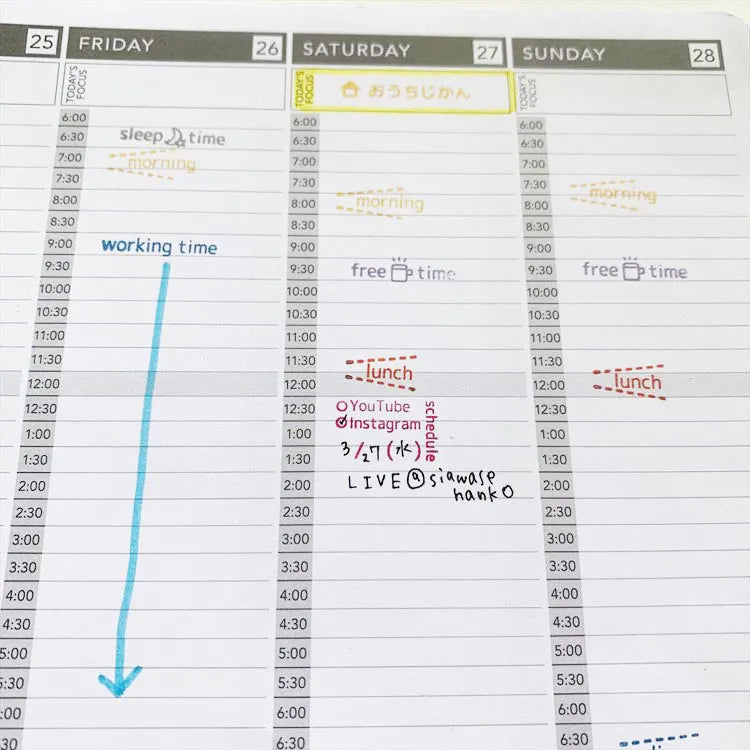 25
FRIDAY 26
TODAY'S FOCUS
6:00
6:30 sleep time
7:00 morning
7:30
8:00
8:30
9:00 working time
9:30
10:00
10:30
11:00
11:30
12:00
12:30
1:00
1:30
2:00
2:30
3:00
3:30
4:00
4:30
5:00
5:30
:00
:30
SATURDAY 27
TODAY'S FOCUS
おうちじかん
6:00
6:30
7:00
7:30
8:00 morning
8:30
9:00
9:30 free time
10:00
10:30
11:00
11:30
lunch
12:00
12:30 YouTube
1:00 Instagram
schedule
1:30 3/27(水)
2:00 LIVE@siawase
hanko
2:30
3:00
3:30
4:00
4:30
5:00
5:30
6:00
6:30
SUNDAY 28
TODAY'S FOCUS
6:00
6:30
7:00
7:30
morning
8:00
8:30
9:00
9:30 free time
10:00
10:30
11:00
11:30
12:00 lunch
12:30
1:00
1:30
2:00
2:30
3:00
3:30
4:00
4:30
5:00
5:30
6:00
6:30